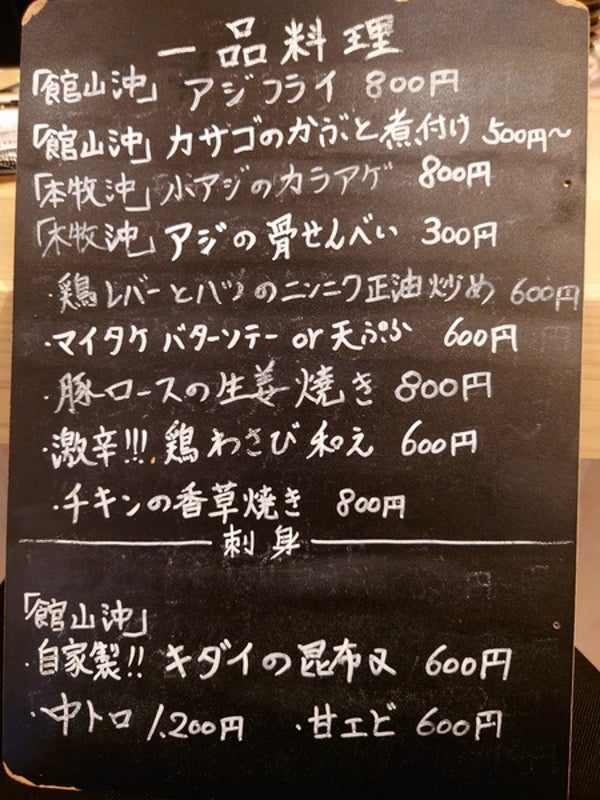 一品料理
「館山沖」 アジフライ 800円
「館山沖」 カサゴのかぶと煮付け 500円〜
「本牧沖」 小アジのカラアゲ 800円
「本牧沖」 アジの骨せんべい 300円
・鶏レバーとハツのニンニク正油炒め 600円
・マイタケ バターソテー or 天ぷら 600円
・豚ロースの生姜焼き 800円
・激辛!!! 鶏わさび和え 600円
・チキンの香草焼き 800円
刺身
「館山沖」
・自家製!! キダイの昆布〆 600円
・中トロ 1.200円 ・甘エビ 600円